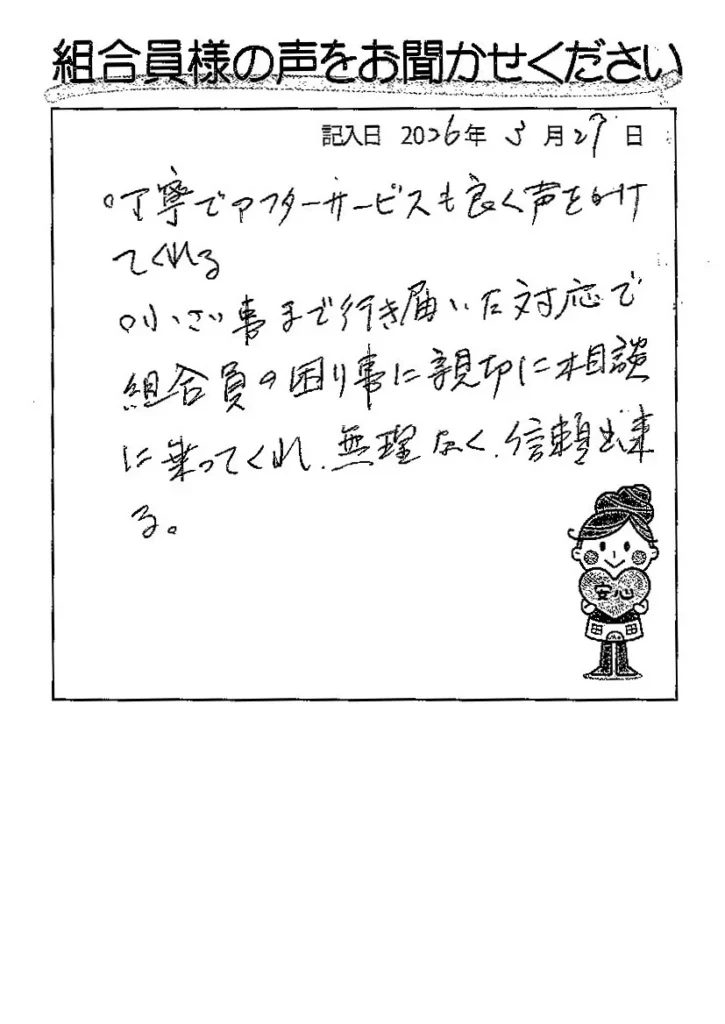 組合員様の声をお聞かせください
記入日 2026年 3月27日
○丁寧でアフターサービスも良く声をかけ
てくれる
○小さい事まで行き届いた対応で
組合員の困り事に親切に相談
に乗ってくれ、無理なく、信頼出来
る。
安心